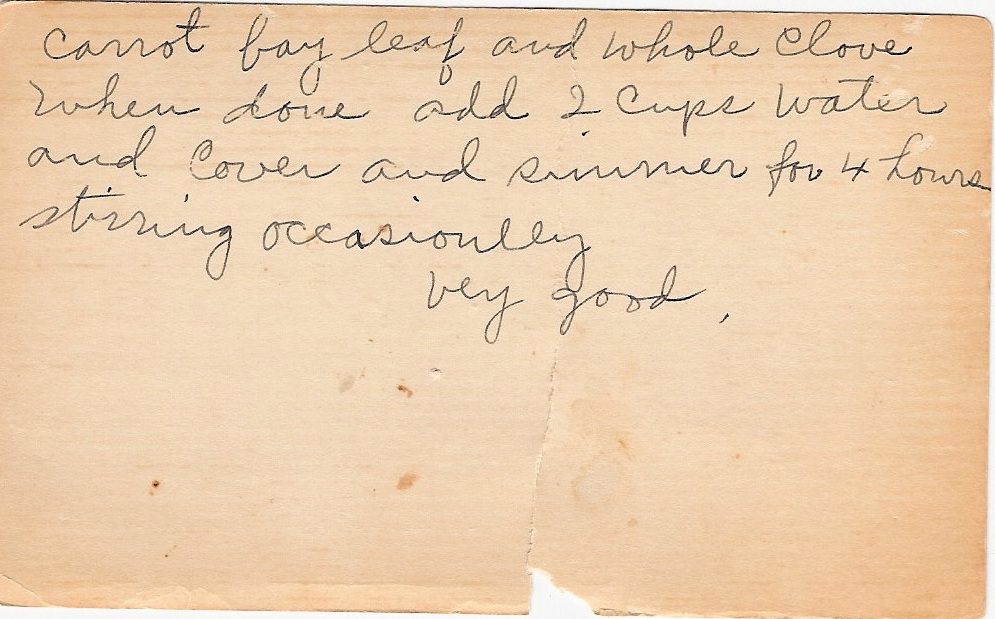 carrot bay leaf and whole Clove
When done add 2 Cups Water
and Cover and simmer for 4 hours
stirring occasionlly
Vey good,